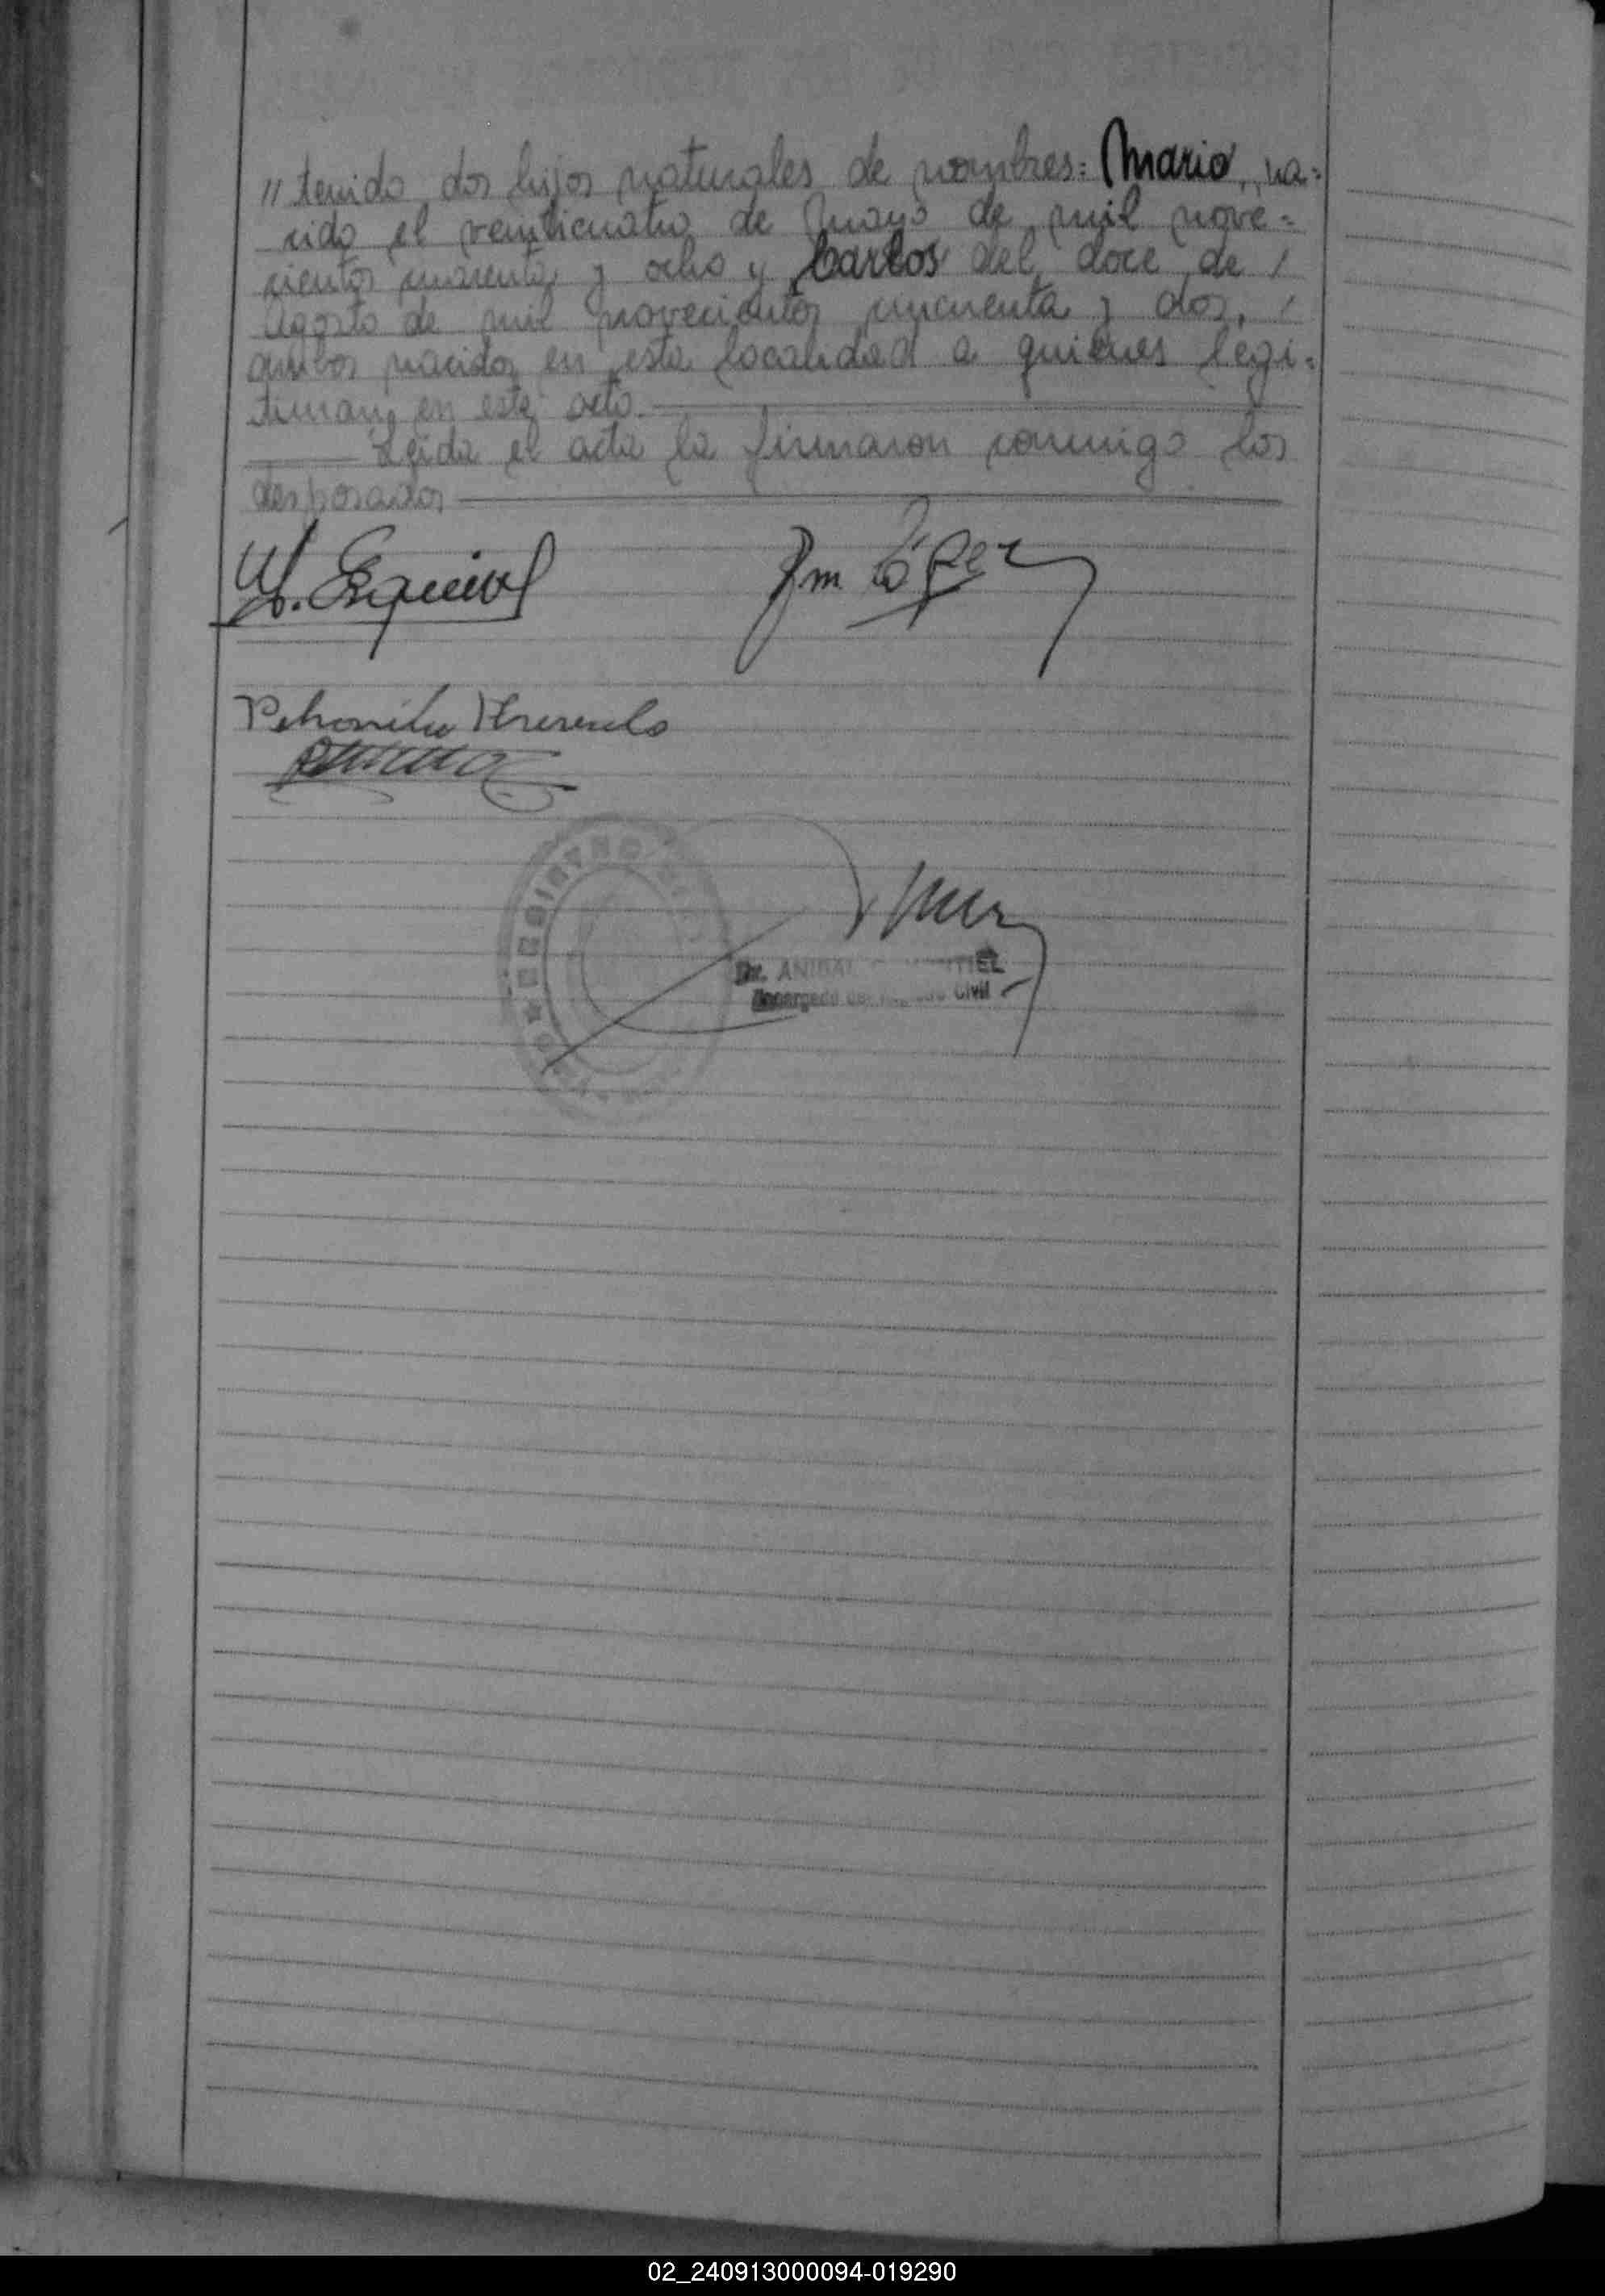 // tenido dos hijos naturales de nombres: Mario, na=
cido el veinticuatro de Mayo de mil nove=
cientos cuarenta y ocho y Carlos del doce de /
Agosto de mil novecientos cincuenta y dos, /
ambos nacidos en esta localidad a quienes legi=
timan en este acto.
Leida el acta la firmaron conmigo los
desposados
M. Esquivel
Jm López
Petronila
REGISTRO
Dr. ANIBAL
Encargado del Registro Civil
02_240913000094-019290